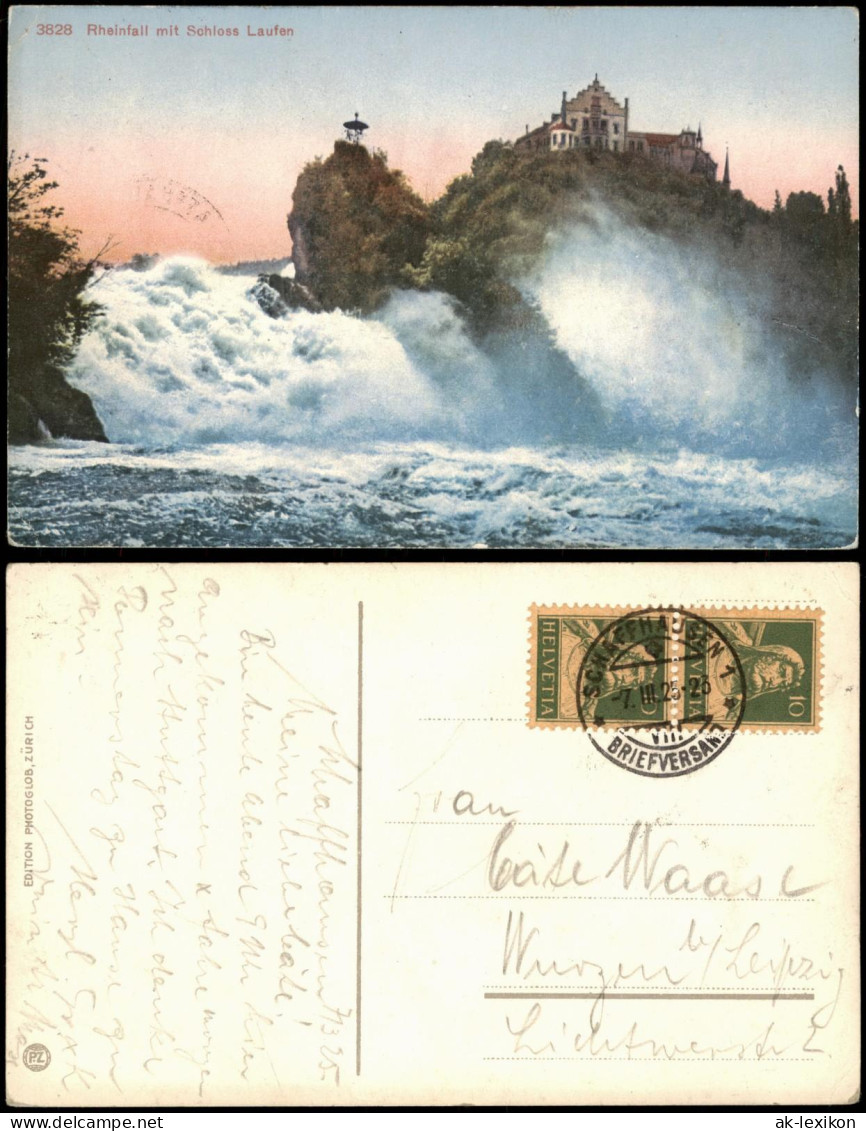 3828 Rheinfall mit Schloss Laufen
HELVETIA
10
SCHAFFHAUSEN 1
-7.III.25-23
VIII
BRIEFVERSAND
EDITION PHOTOGLOB, ZÜRICH
PZ
Schaffhausen 7/3 25.
Meine liebe Käte!
Bin heute Abend 9 Uhr hier
angekommen & fahre morgen
nach Stuttgart. Ich denke
Donnerstag zu Hause zu
sein.
Herzl. Gruß & K.
Frau
Käte Waase
Wurzen b/ Leipzig
Lichtwerstr. 2
ak-lexikon